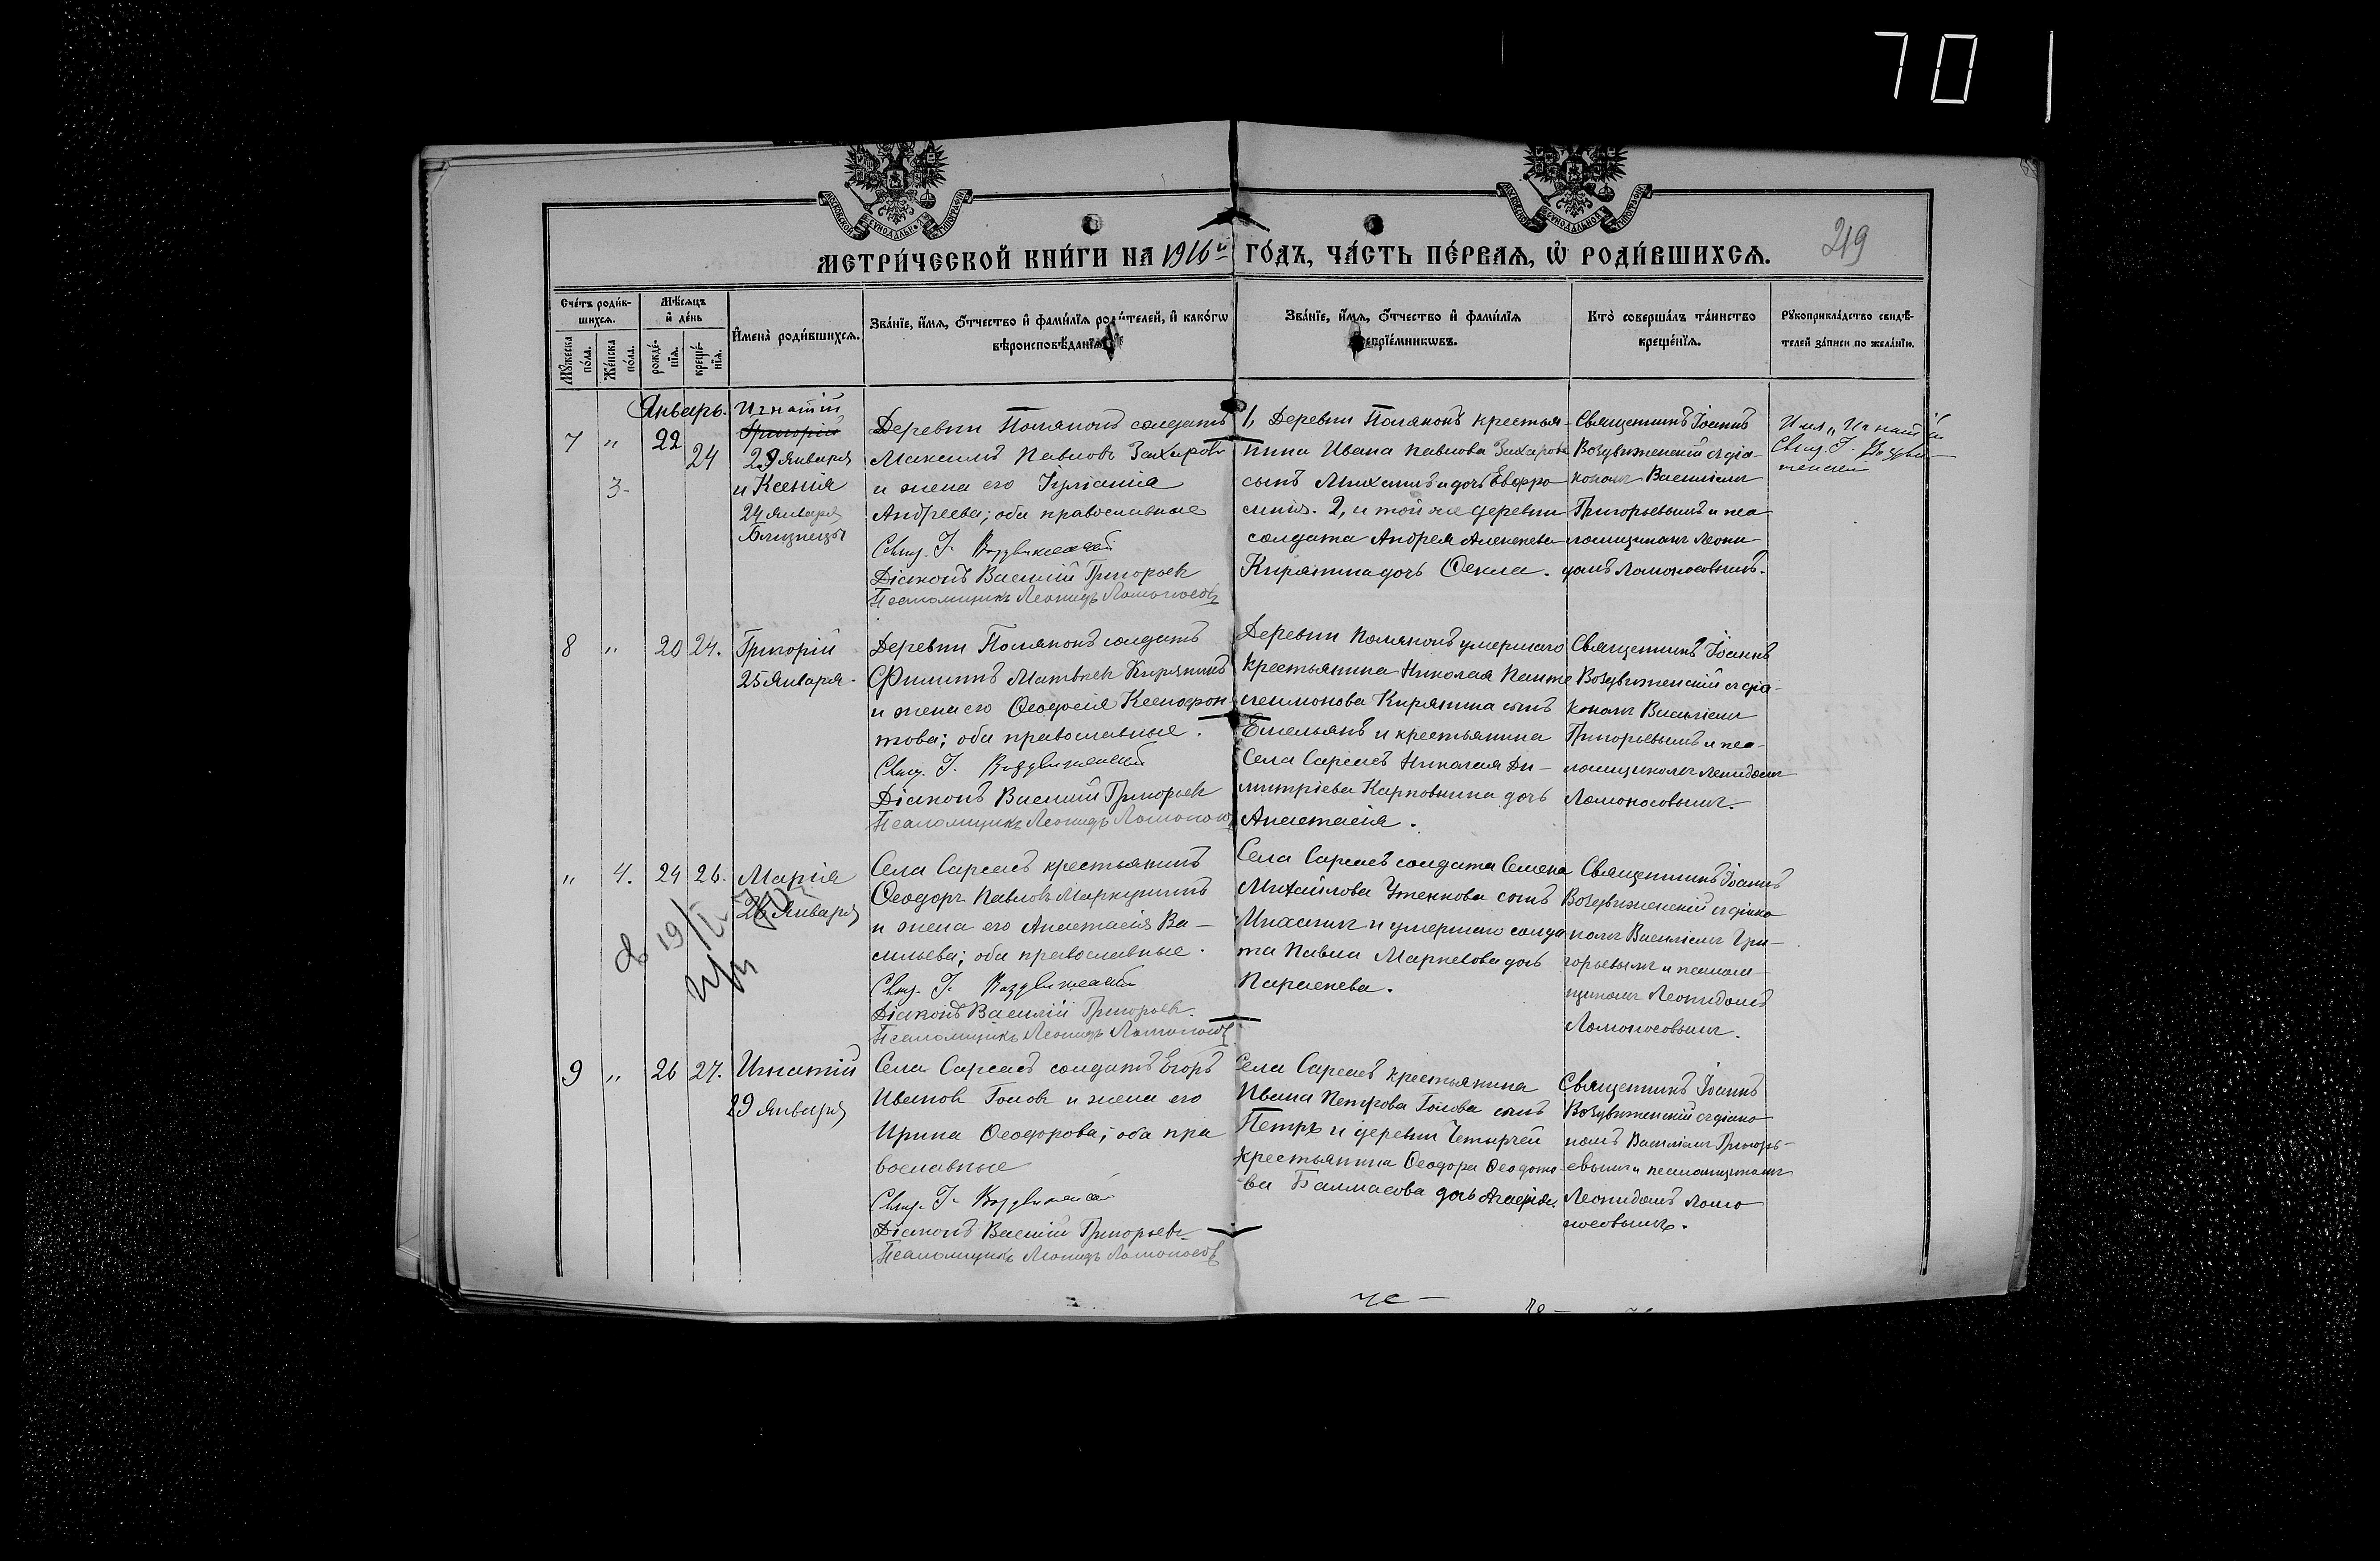 70
219
МЕТРИ́ЧЕСКОЙ КНИ́ГИ НА 1916й ГО́ДЪ, ЧА́СТЬ ПЕ́РВАЯ, Ѡ РОДИ́ВШИХСЯ.
Сче́тъ роди́в-
шихся.
Му́жеска по́ла.
Же́нска по́ла.
Мѣ́сяцъ
и де́нь
рожде́-
нїя.
креще́-
нїя.
Имена̀ роди́вшихся.
Зва́нїе, и́мя, о́тчество и фами́лїя роди́телей, и како́гѡ
вѣроисповѣ́данїя.
Зва́нїе, и́мя, о́тчество и фами́лїя
воспрїе́мникѡвъ.
Кто̀ соверша́лъ та́инство
креще́нїя.
Рукоприкла́дство свидѣ́-
телей за́писи по жела́нїю.
Январь.
7 " 22 24
3
Игнатій
Григорій
29 Января
и Ксенія
24 Января
Близнецы
Деревни Полянокъ солдатъ
Максимъ Павловъ Захаровъ
и жена его Іуліанія
Андреева; оба православные
Свящ. І. Воздвиженскій
Діаконъ Василій Григорьевъ
Псаломщикъ Леонидъ Ломоносовъ
1, Деревни Полянокъ крестья-
нина Ивана Павлова Захарова
сынъ Михаилъ и дочь Евфро
синія. 2, и той же деревни
солдата Андрея Алексеева
Кирянина дочь Фекла.
Священникъ Іоаннъ
Воздвиженскій съ діа-
кономъ Василіемъ
Григорьевымъ и пса
ломщикомъ Леони-
домъ Ломоносовымъ.
Имя "Игнатій"
Свящ. І. Воздви-
женскій
8 " 20 24.
Григорій
25 Января.
Деревни Полянокъ солдатъ
Филиппъ Матвеевъ Кирянинъ
и жена его Феодосія Ксенофон
това; оба православные.
Свящ. І. Воздвиженскій
Діаконъ Василій Григорьевъ
Псаломщикъ Леонидъ Ломоносовъ
Деревни Полянокъ умершаго
крестьянина Николая Панте
леимонова Кирянина сынъ
Емельянъ и крестьянина
Села Сарсасъ Николая Ди-
митріева Карповнина дочь
Анастасія.
Священникъ Іоаннъ
Воздвиженскій съ діа-
кономъ Василіемъ
Григорьевымъ и пса-
ломщикомъ Леонидомъ
Ломоносовымъ.
" 4. 24 26.
Марія
26 Января
Села Сарсасъ крестьянинъ
Феодоръ Павловъ Маркушинъ
и жена его Анастасія Ва-
сильева; оба православные.
Свящ. І. Воздвиженскій
Діаконъ Василій Григорьевъ.
Псаломщикъ Леонидъ Ломоносовъ
Села Сарсасъ солдата Семена
Михайлова Утенкова сынъ
и умершаго солда
та Павла дочь
Параскева.
Священникъ Іоаннъ
Воздвиженскій съ діако
номъ Василіемъ Гри-
горьевымъ и псалом-
щикомъ Леонидомъ
Ломоносовымъ.
9 " 26 27.
Игнатій
29 Января
Села Сарсасъ солдатъ Егоръ
Ивановъ Головъ и жена его
Ирина Феодорова; оба пра
вославные
Свящ. І. Воздвиженскій
Діаконъ Василій Григорьевъ
Псаломщикъ Леонидъ Ломоносовъ
Села Сарсасъ крестьянина
Ивана Петрова Голова сынъ
Петръ и деревни Четырчей
крестьянина Феодора Феодото
ва Балмасова дочь
Священникъ Іоаннъ
Воздвиженскій съ діако
номъ Василіемъ Григорь-
евымъ и псаломщикомъ
Леонидомъ Ломо
носовымъ.